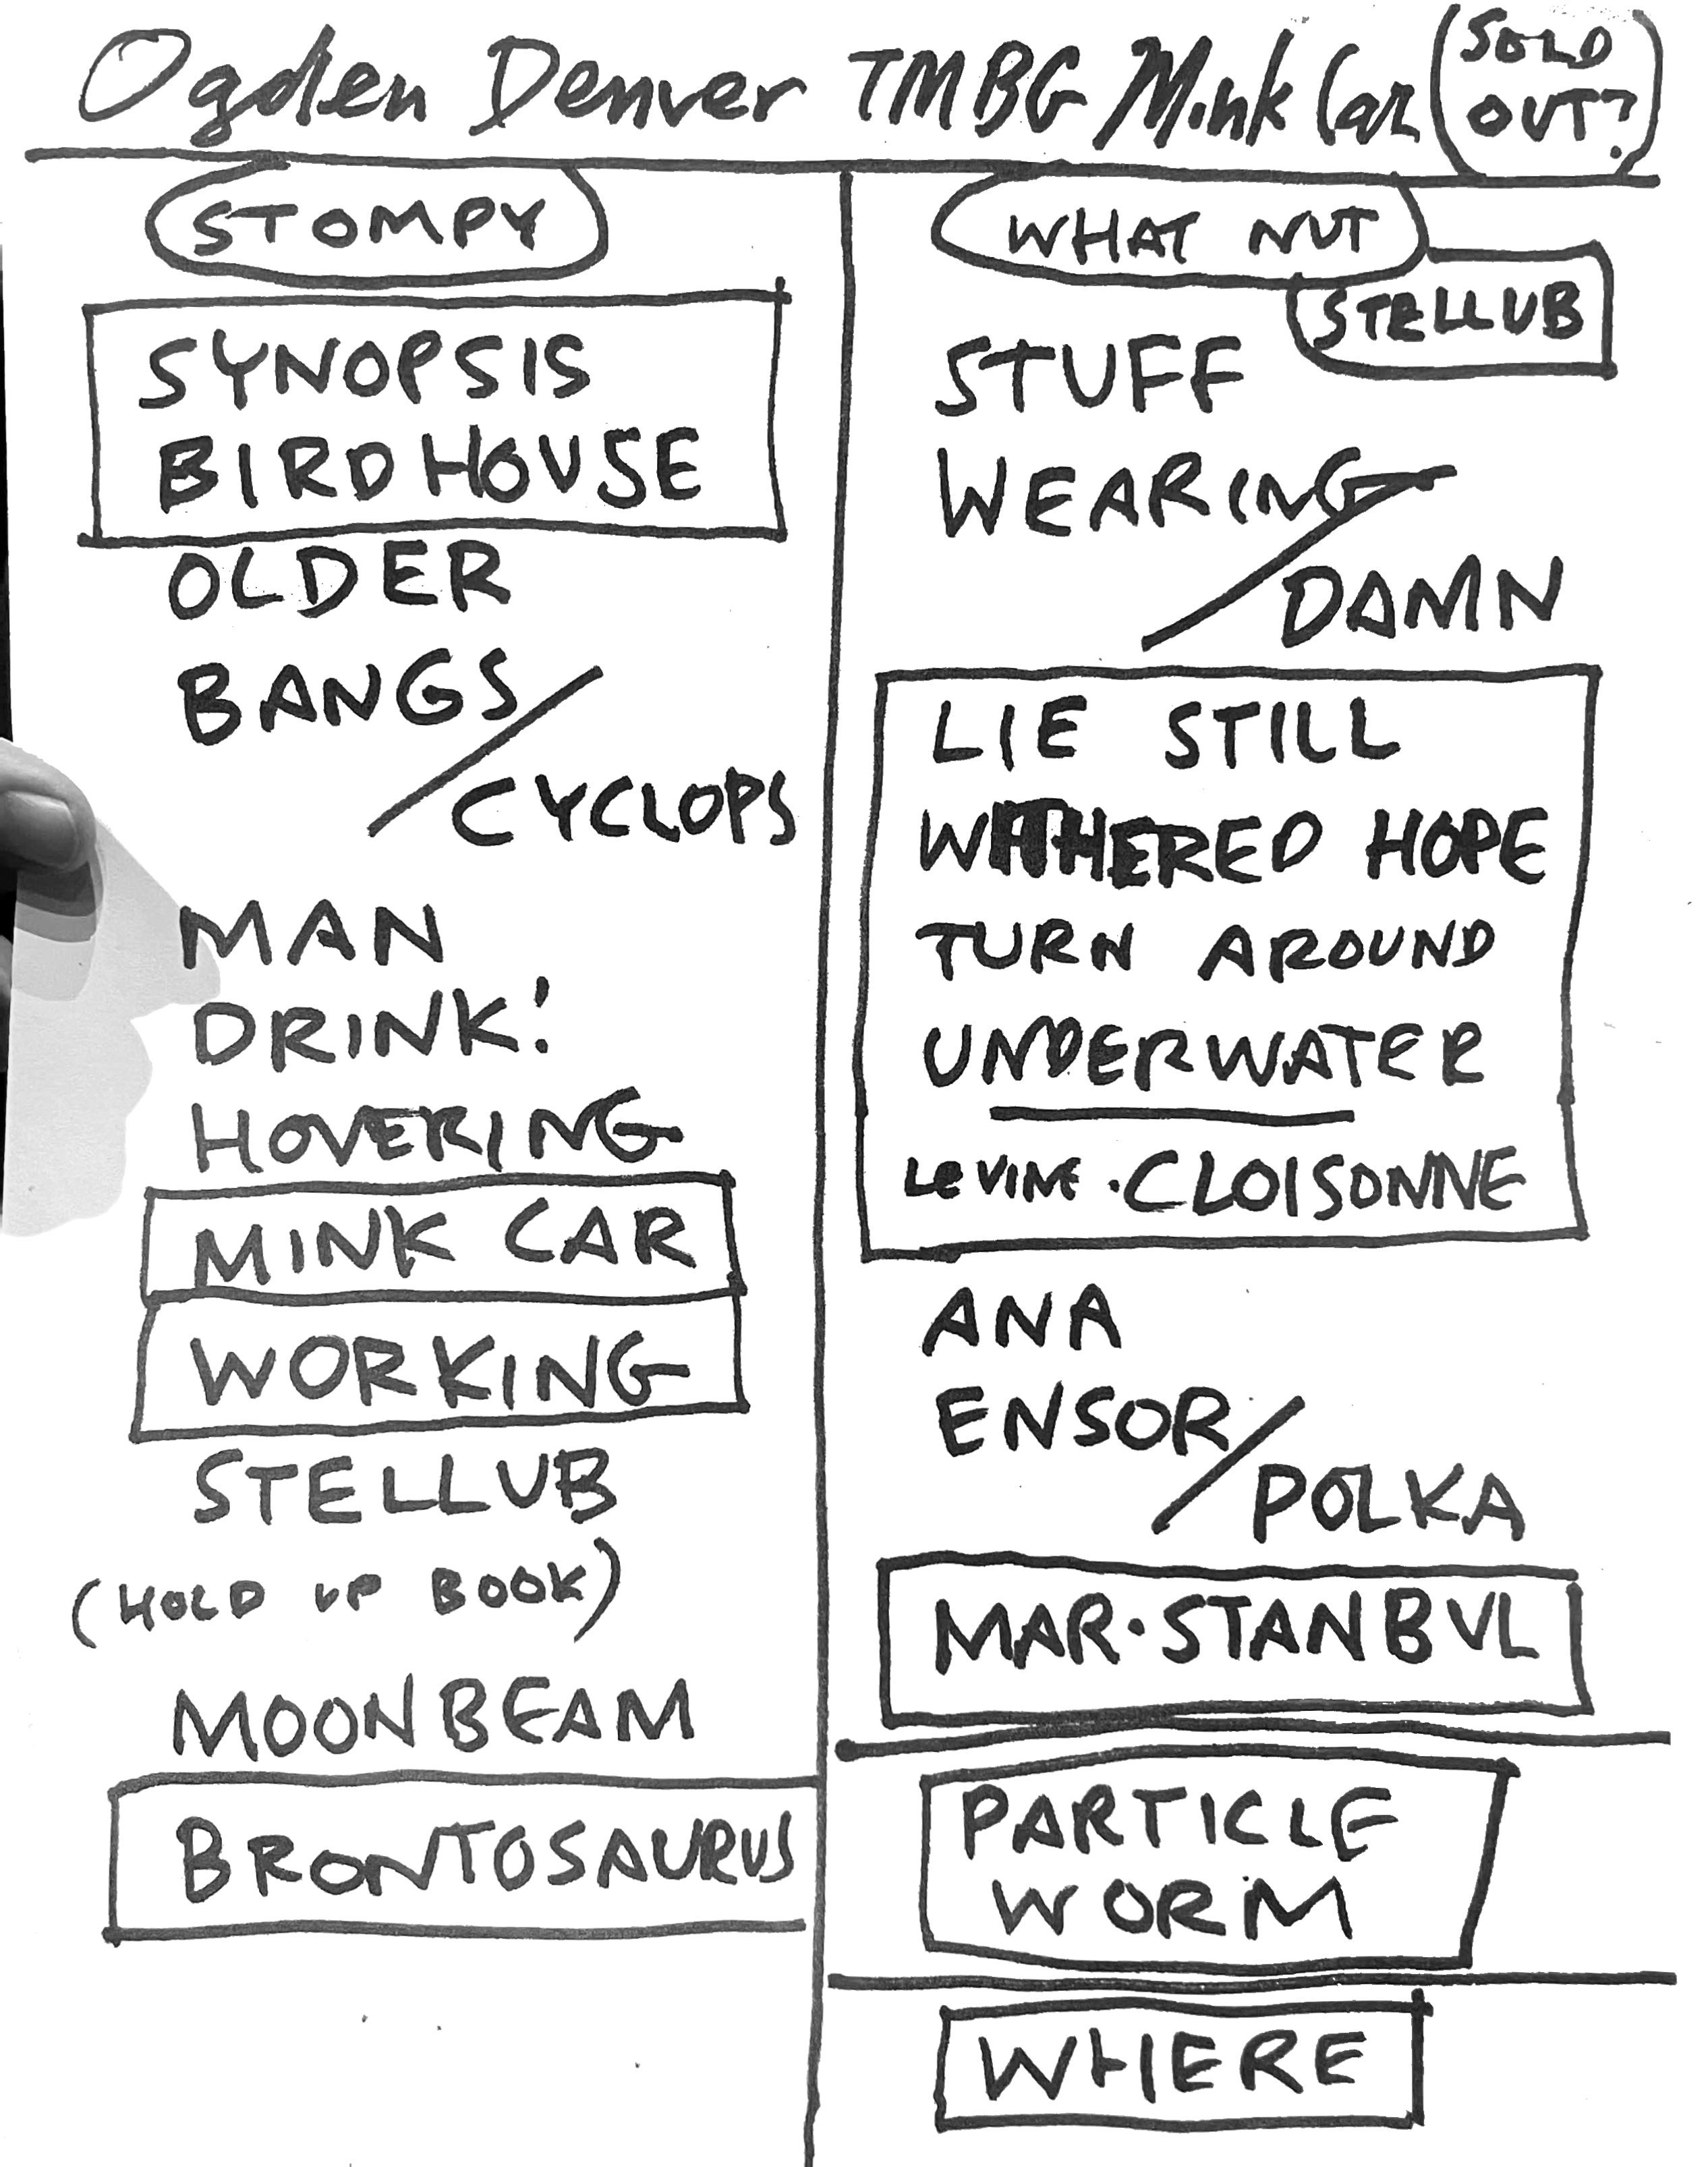 Ogden Denver TMBG Mink Car (SOLD OUT?)
STOMPY
SYNOPSIS
BIRDHOUSE
OLDER
BANGS/
CYCLOPS
MAN
DRINK!
HOVERING
MINK CAR
WORKING
STELLUB
(HOLD UP BOOK)
MOONBEAM
BRONTOSAURUS
WHAT NUT
STELLUB
STUFF
WEARING
/DAMN
LIE STILL
WITHERED HOPE
TURN AROUND
UNDERWATER
LeVINE · CLOISONNE
ANA
ENSOR/
POLKA
MAR·STANBUL
PARTICLE
WORM
WHERE